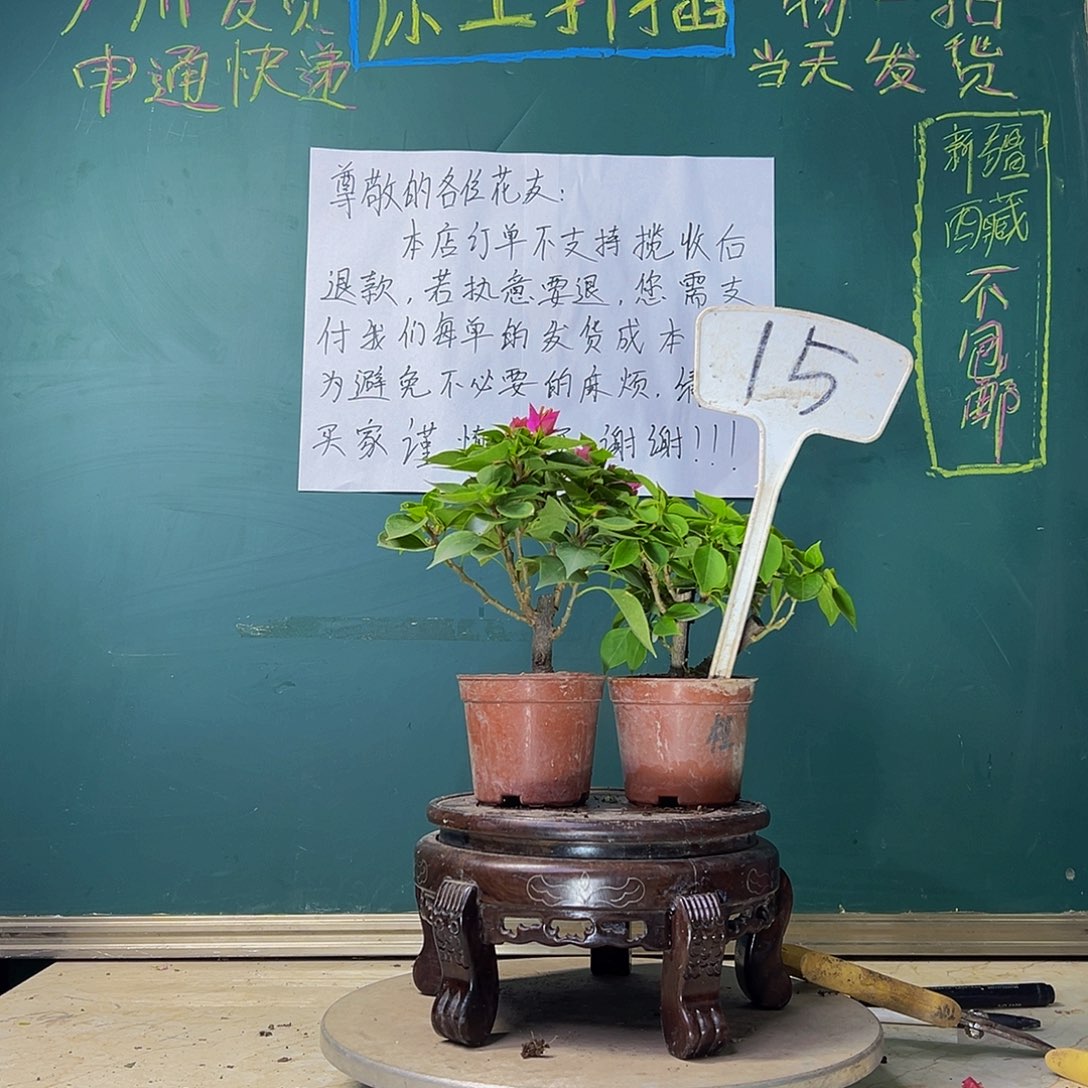 广州发货
申通快递
原土扦插
物一拍
当天发货
尊敬的各位花友:
本店订单不支持揽收后
退款,若执意要退,您需支
付我们每单的发货成本
为避免不必要的麻烦.
买家谨慎 谢谢!!!
15
新疆
西藏
不包邮